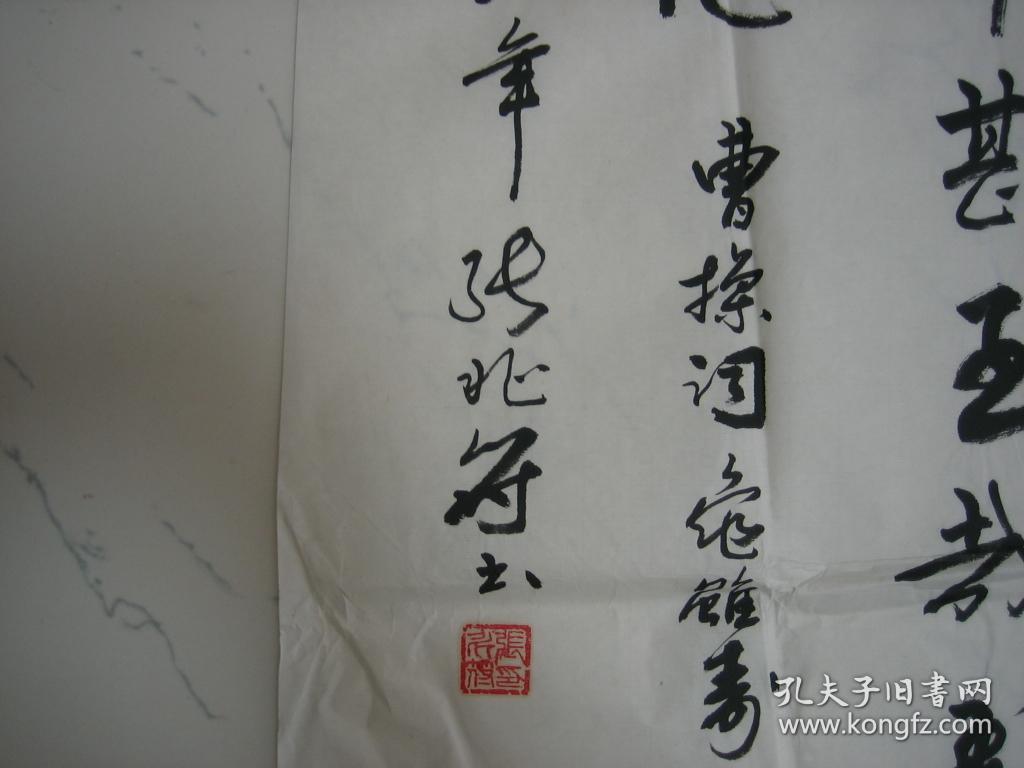 甚至哉
曹操词龟虽寿
年张兆符书
孔夫子旧书网
www.kongfz.com